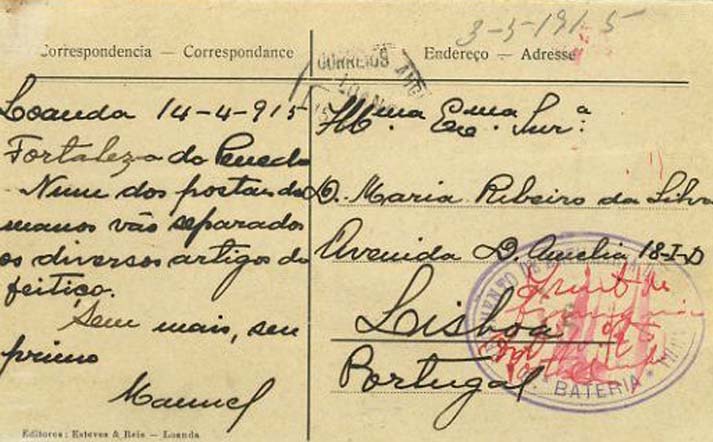 3-5-1915
Correspondencia — Correspondance
Endereço — Adresse
CORREIOS
LOANDA
Loanda 14-4-915
Fortaleza do Penedo
Num dos postais de
manos vão separados
os diversos artigos do
feitiço.
Sem mais, seu
primo
Manuel
Illma. Exma. Snr.a
D. Maria Ribeiro da Silva
Avenida D. Amelia 18-1-D
Lisboa
Portugal
BATERIA
Editores: Esteves & Reis — Loanda